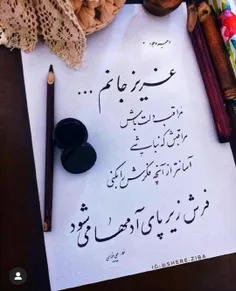 عزیز جانم ...
مراقب دلت باش
مراقبش که نباشی
آسانتر از آنچه فکرش را بکنی
فرش زیر پای آدمها می شود
IG:@SHERE.ZIBA